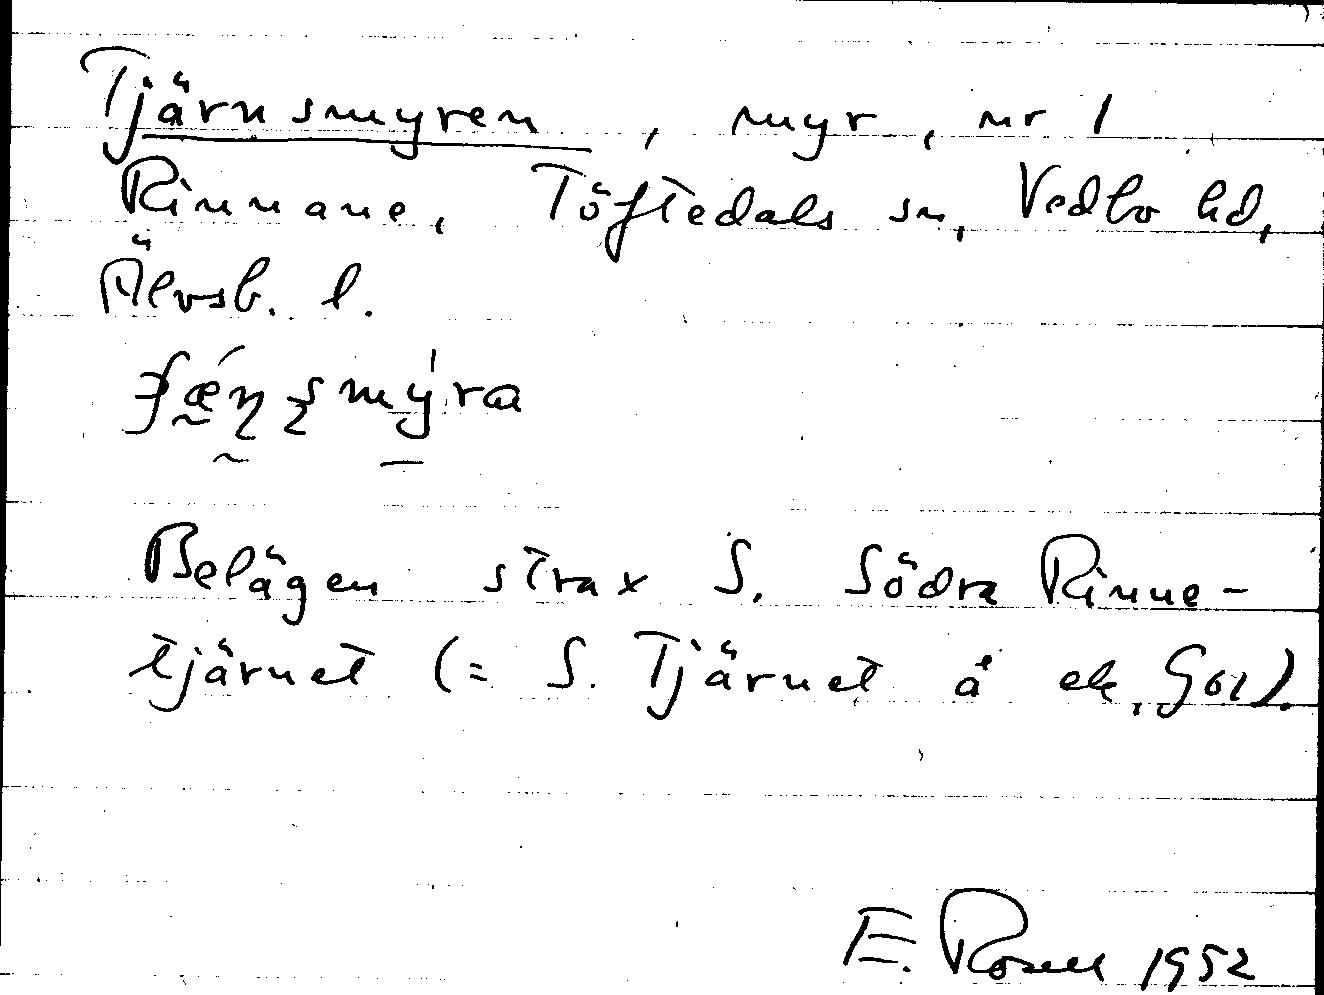 Tjärnsmyren, myr, nr 1
Rinnane, Töftedals sn, Vedbo hd,
Älvsb. l.
Belägen strax S. Södra Rinne-
tjärnet (= S. Tjärnet å ek.
E. Rosell 1952